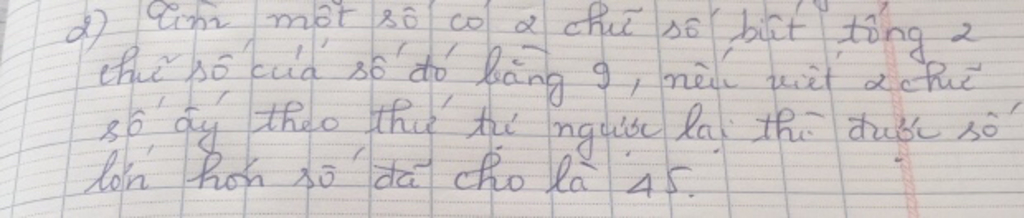 2) Tìm một số có 2 chữ số biết tổng 2
chữ số của số đó bằng 9, nếu viết 2 chữ
số ấy theo thứ tự ngược lại thì được số
lớn hơn số đã cho là 45.